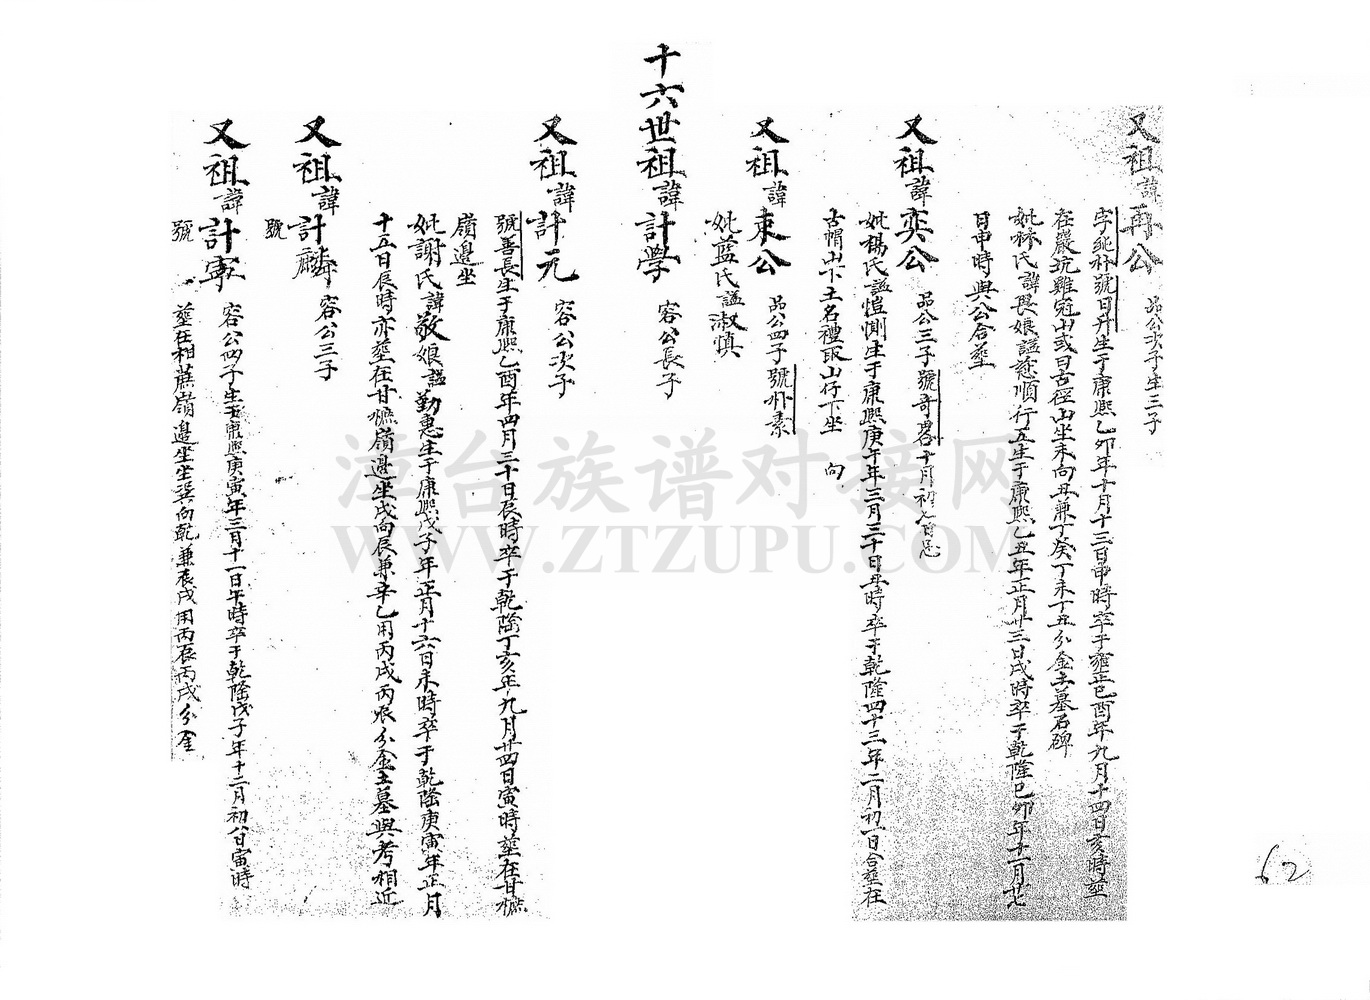 又祖諱再公 品公次子生三子
字純朴號日升生于康熙乙卯年十月十三日申時卒于雍正己酉年九月十四日亥時塟
在嚴坑雞冠山或曰古徑山坐未向丑兼丁癸丁未丁丑分金土墓石碑
妣林氏諱良娘謚慈順行五生于康熙乙丑年正月廿三日戌時卒于乾隆己卯年十一月廿七
日申時與公合塟
又祖諱奕公 品公三子號奇畧十月初七日忌
妣楊氏謚愷惻生于康熙庚午年三月三十日丑時卒于乾隆四十三年二月初一日合塟在
古帽山下土名禮取山仔下坐 向
又祖諱束公 品公四子號朴素
妣藍氏謚淑慎
十六世祖諱計學 容公長子
又祖諱計元 容公次子
號善長生于康熙乙酉年四月三十日辰時卒于乾隆丁亥年九月廿四日寅時塟在甘樜
嶺邊坐
妣謝氏諱敬娘謚勤惠生于康熙戊子年正月十六日未時卒于乾隆庚寅年正月
十五日辰時亦塟在甘樜嶺邊坐戌向辰兼辛乙用丙戌丙辰分金土墓與考相近
又祖諱計麟 容公三子
號
又祖諱計寧 容公四子生于康熙庚寅年三月十一日午時卒于乾隆戊子年十二月初八日寅時
號 塟在相蔗嶺邊坐坐巽向乾兼辰戌用丙辰丙戌分金
漳台族谱对接网
WWW.ZTZUPU.COM
62